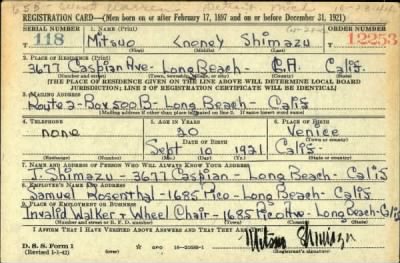 REGISTRATION CARD—(Men born on or after February 17, 1897 and on or before December 31, 1921)
SERIAL NUMBER 1. NAME (Print) ORDER NUMBER
T 118 Mitsuo Shimazu 12253
(First) (Middle) (Last)
2. PLACE OF RESIDENCE (Print)
3677 Caspian Ave - Long Beach - L.A. Calif.
(Number and street) (Town, township, village, or city) (County) (State)
[THE PLACE OF RESIDENCE GIVEN ON THE LINE ABOVE WILL DETERMINE LOCAL BOARD
JURISDICTION; LINE 2 OF REGISTRATION CERTIFICATE WILL BE IDENTICAL]
3. MAILING ADDRESS
Route 2 - Box 500 B - Long Beach - Calif
[Mailing address if other than place indicated on line 2. If same insert word same]
4. TELEPHONE 5. AGE IN YEARS 6. PLACE OF BIRTH
none 20 Venice
DATE OF BIRTH (Town or county)
Sept 10 1921 Calif.
(Exchange) (Number) (Mo.) (Day) (Yr.) (State or country)
7. NAME AND ADDRESS OF PERSON WHO WILL ALWAYS KNOW YOUR ADDRESS
J. Shimazu - 3677 Caspian - Long Beach - Calif
8. EMPLOYER'S NAME AND ADDRESS
Samuel Rosenthal - 1685 Pico - Long Beach - Calif
9. PLACE OF EMPLOYMENT OR BUSINESS
Invalid Walker + Wheel Chair - 1685 Pico Ave - Long Beach - Calif
(Number and street or R. F. D. number) (Town) (County) (State)
I AFFIRM THAT I HAVE VERIFIED ABOVE ANSWERS AND THAT THEY ARE TRUE.
D. S. S. Form 1
(Revised 1-1-42) GPO 16—21630-1 Mitsuo Shimazu